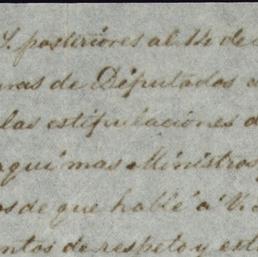 S. posteriores al 14 de
ras de Diputados
las estipulaciones
aqui mas Ministros
os de que hablé a V.
entos de respeto y est